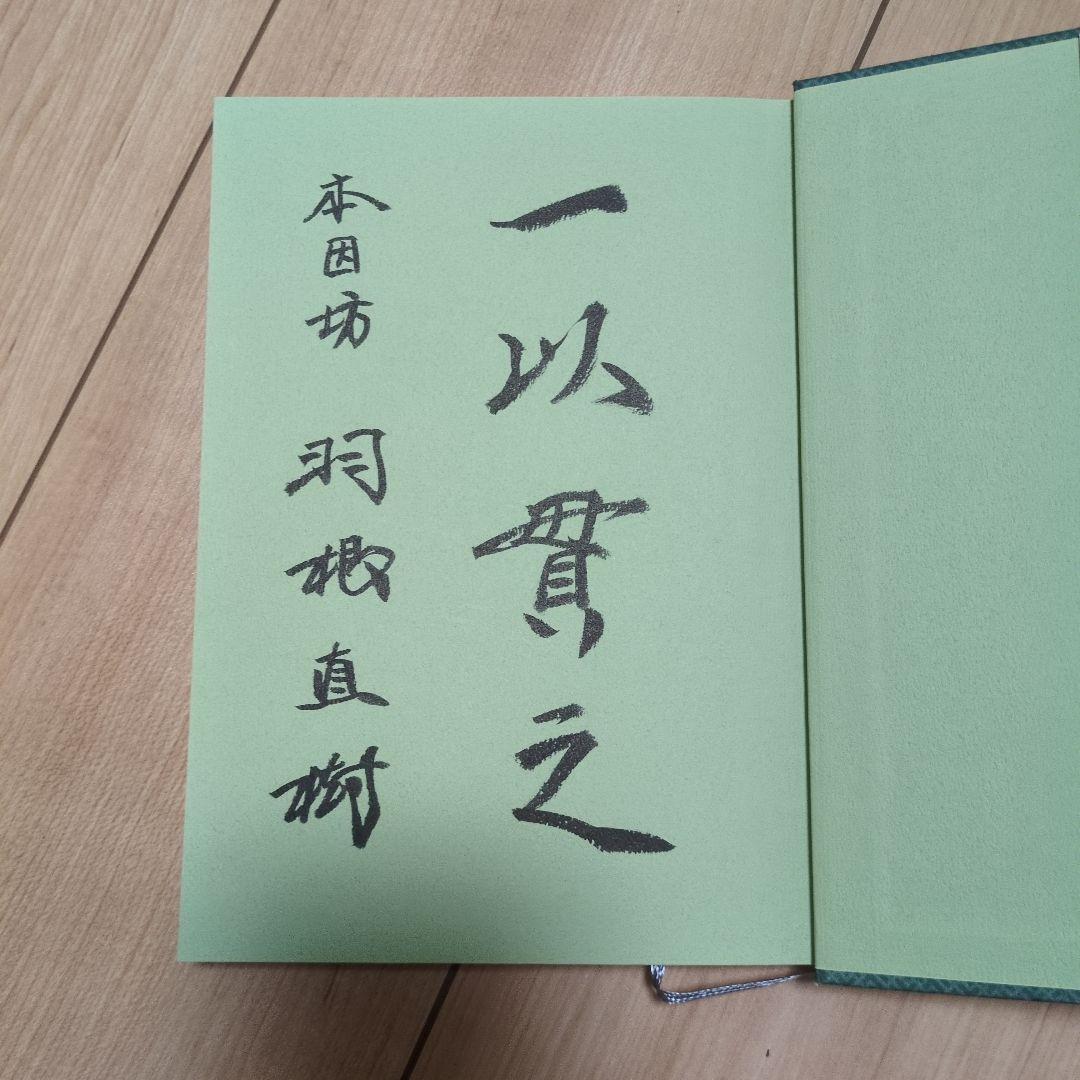 一以貫之
本因坊 羽根直樹